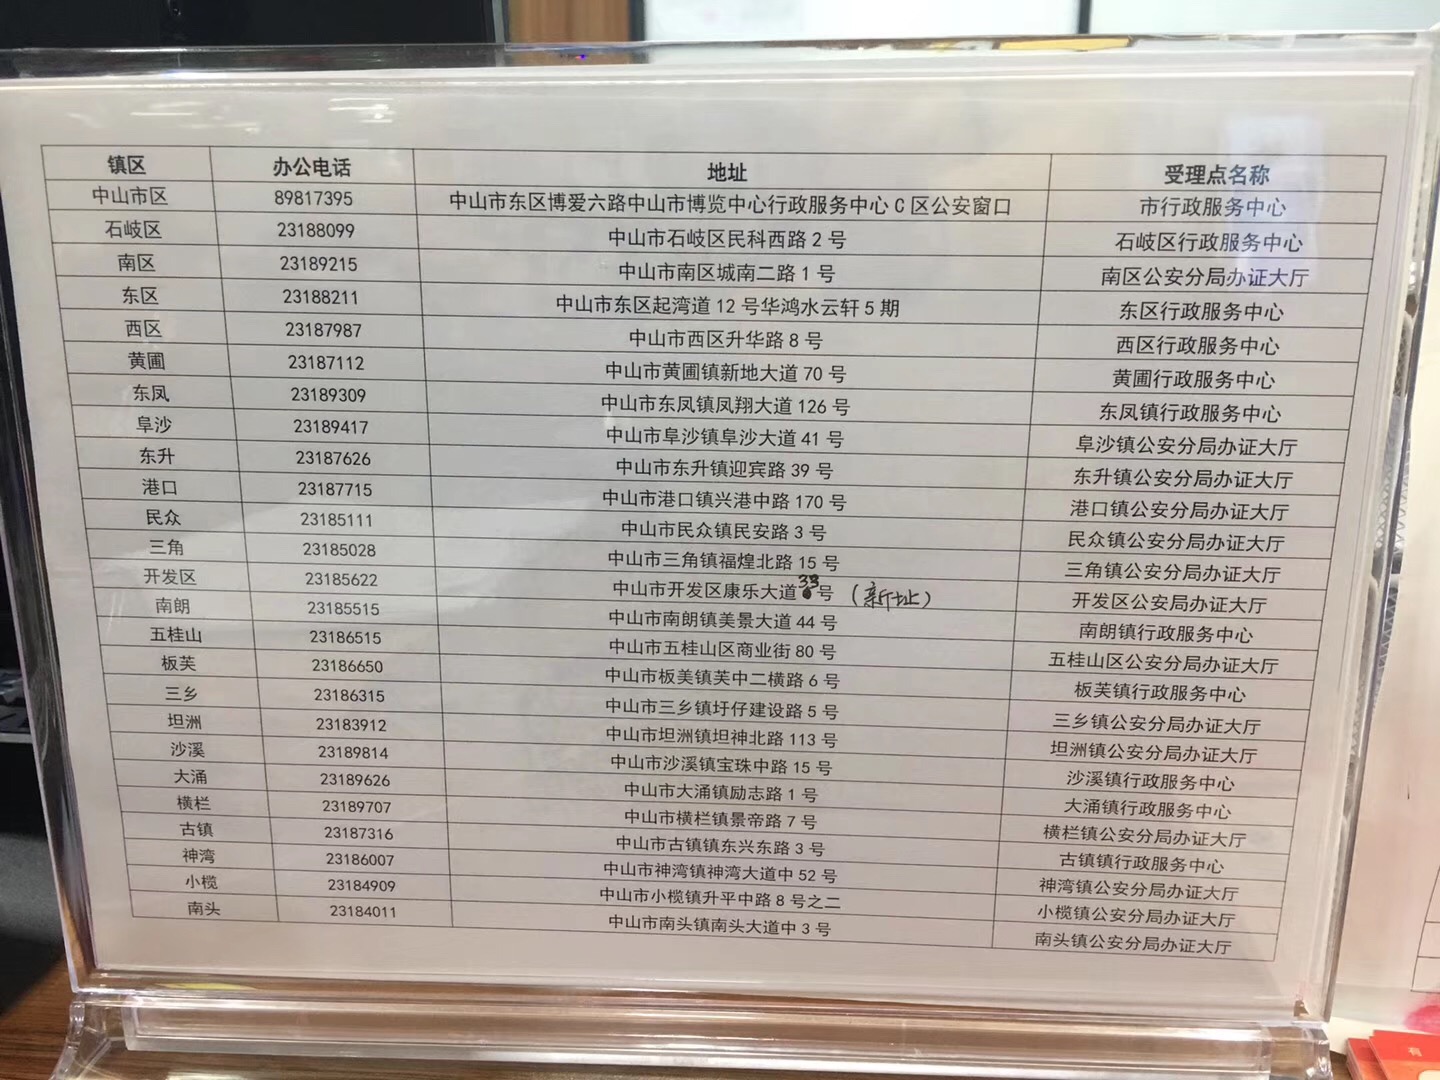 镇区 办公电话 地址 受理点名称
中山市区 89817395 中山市东区博爱六路中山市博览中心行政服务中心C区公安窗口 市行政服务中心
石岐区 23188099 中山市石岐区民科西路2号 石岐区行政服务中心
南区 23189215 中山市南区城南二路1号 南区公安分局办证大厅
东区 23188211 中山市东区起湾道12号华鸿水云轩5期 东区行政服务中心
西区 23187987 中山市西区升华路8号 西区行政服务中心
黄圃 23187112 中山市黄圃镇新地大道70号 黄圃行政服务中心
东凤 23189309 中山市东凤镇凤翔大道126号 东凤镇行政服务中心
阜沙 23189417 中山市阜沙镇阜沙大道41号 阜沙镇公安分局办证大厅
东升 23187626 中山市东升镇迎宾路39号 东升镇公安分局办证大厅
港口 23187715 中山市港口镇兴港中路170号 港口镇公安分局办证大厅
民众 23185111 中山市民众镇民安路3号 民众镇公安分局办证大厅
三角 23185028 中山市三角镇福煌北路15号 三角镇公安分局办证大厅
开发区 23185622 中山市开发区康乐大道33号（新址） 开发区公安分局办证大厅
南朗 23185515 中山市南朗镇美景大道44号 南朗镇行政服务中心
五桂山 23186515 中山市五桂山区商业街80号 五桂山区公安分局办证大厅
板芙 23186650 中山市板美镇芙中二横路6号 板芙镇行政服务中心
三乡 23186315 中山市三乡镇圩仔建设路5号 三乡镇公安分局办证大厅
坦洲 23183912 中山市坦洲镇坦神北路113号 坦洲镇公安分局办证大厅
沙溪 23189814 中山市沙溪镇宝珠中路15号 沙溪镇行政服务中心
大涌 23189626 中山市大涌镇励志路1号 大涌镇行政服务中心
横栏 23189707 中山市横栏镇景帝路7号 横栏镇公安分局办证大厅
古镇 23187316 中山市古镇镇东兴东路3号 古镇镇行政服务中心
神湾 23186007 中山市神湾镇神湾大道中52号 神湾镇公安分局办证大厅
小榄 23184909 中山市小榄镇升平中路8号之二 小榄镇公安分局办证大厅
南头 23184011 中山市南头镇南头大道中3号 南头镇公安分局办证大厅